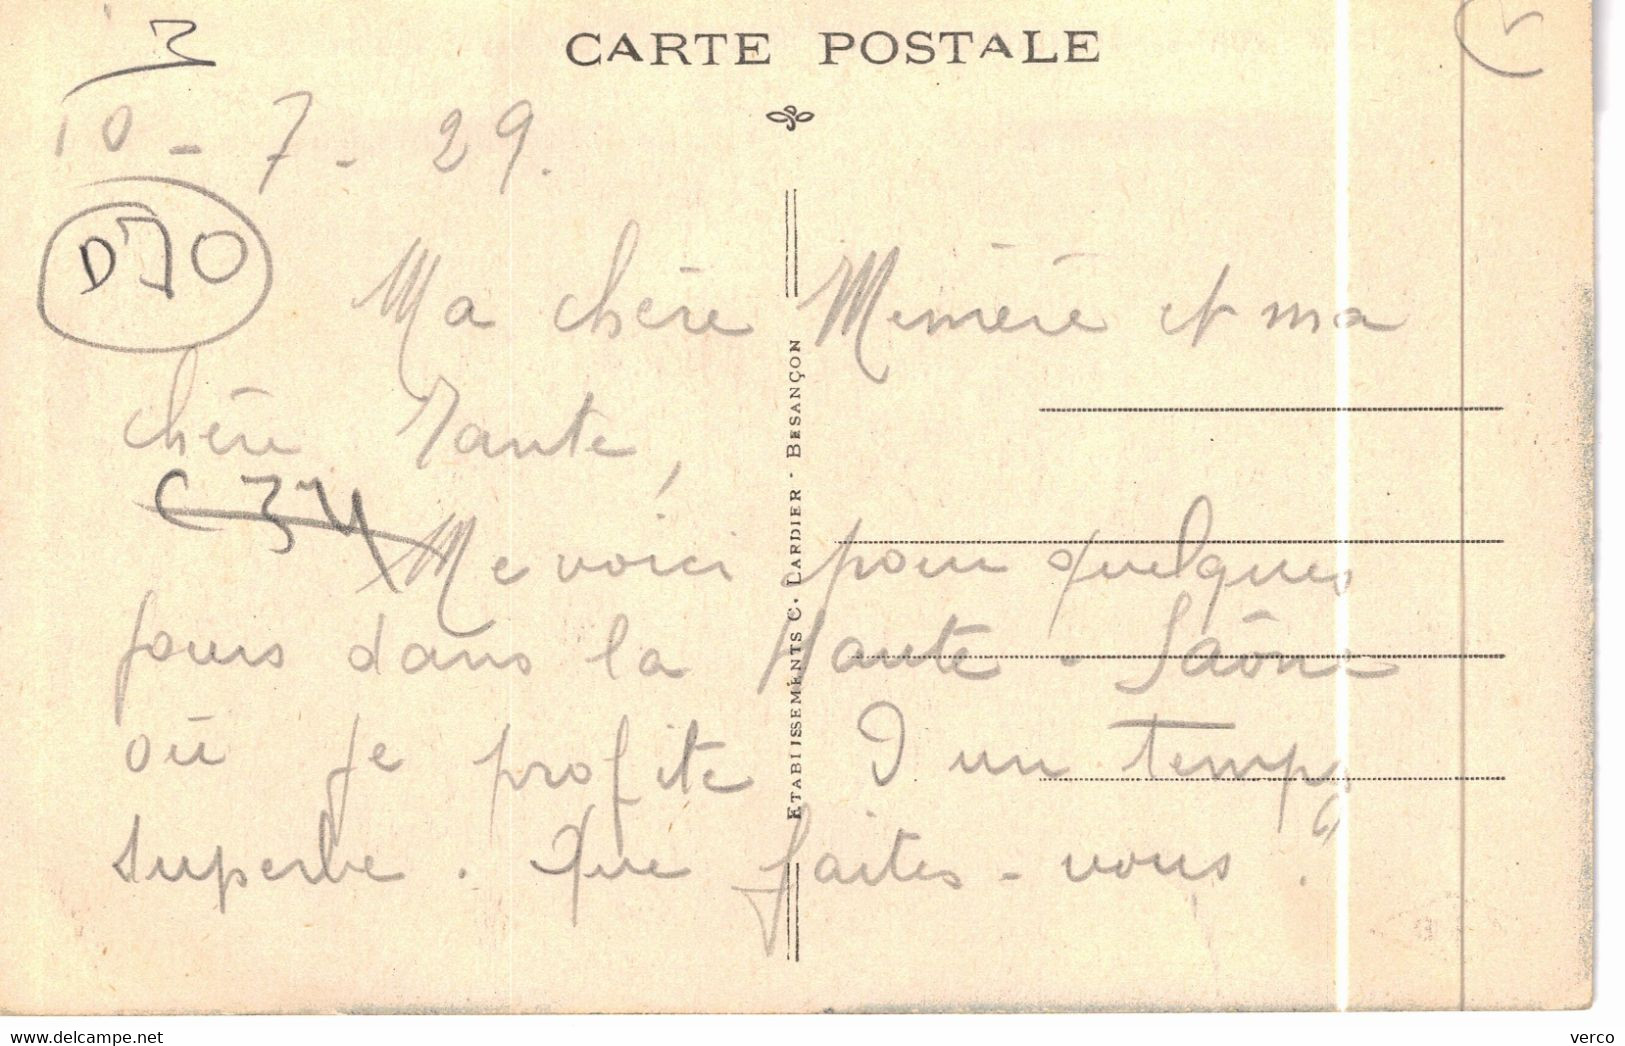 CARTE POSTALE
10-7-29.
D70
Ma chère Mémère et ma
chère Tante,
C 34
Me voici pour quelques
jours dans la Haute-Saône
où je profite d'un temps
superbe. Que faites-vous?
ETABLISSEMENTS C. LARDIER - BESANÇON
www.delcampe.net
verco